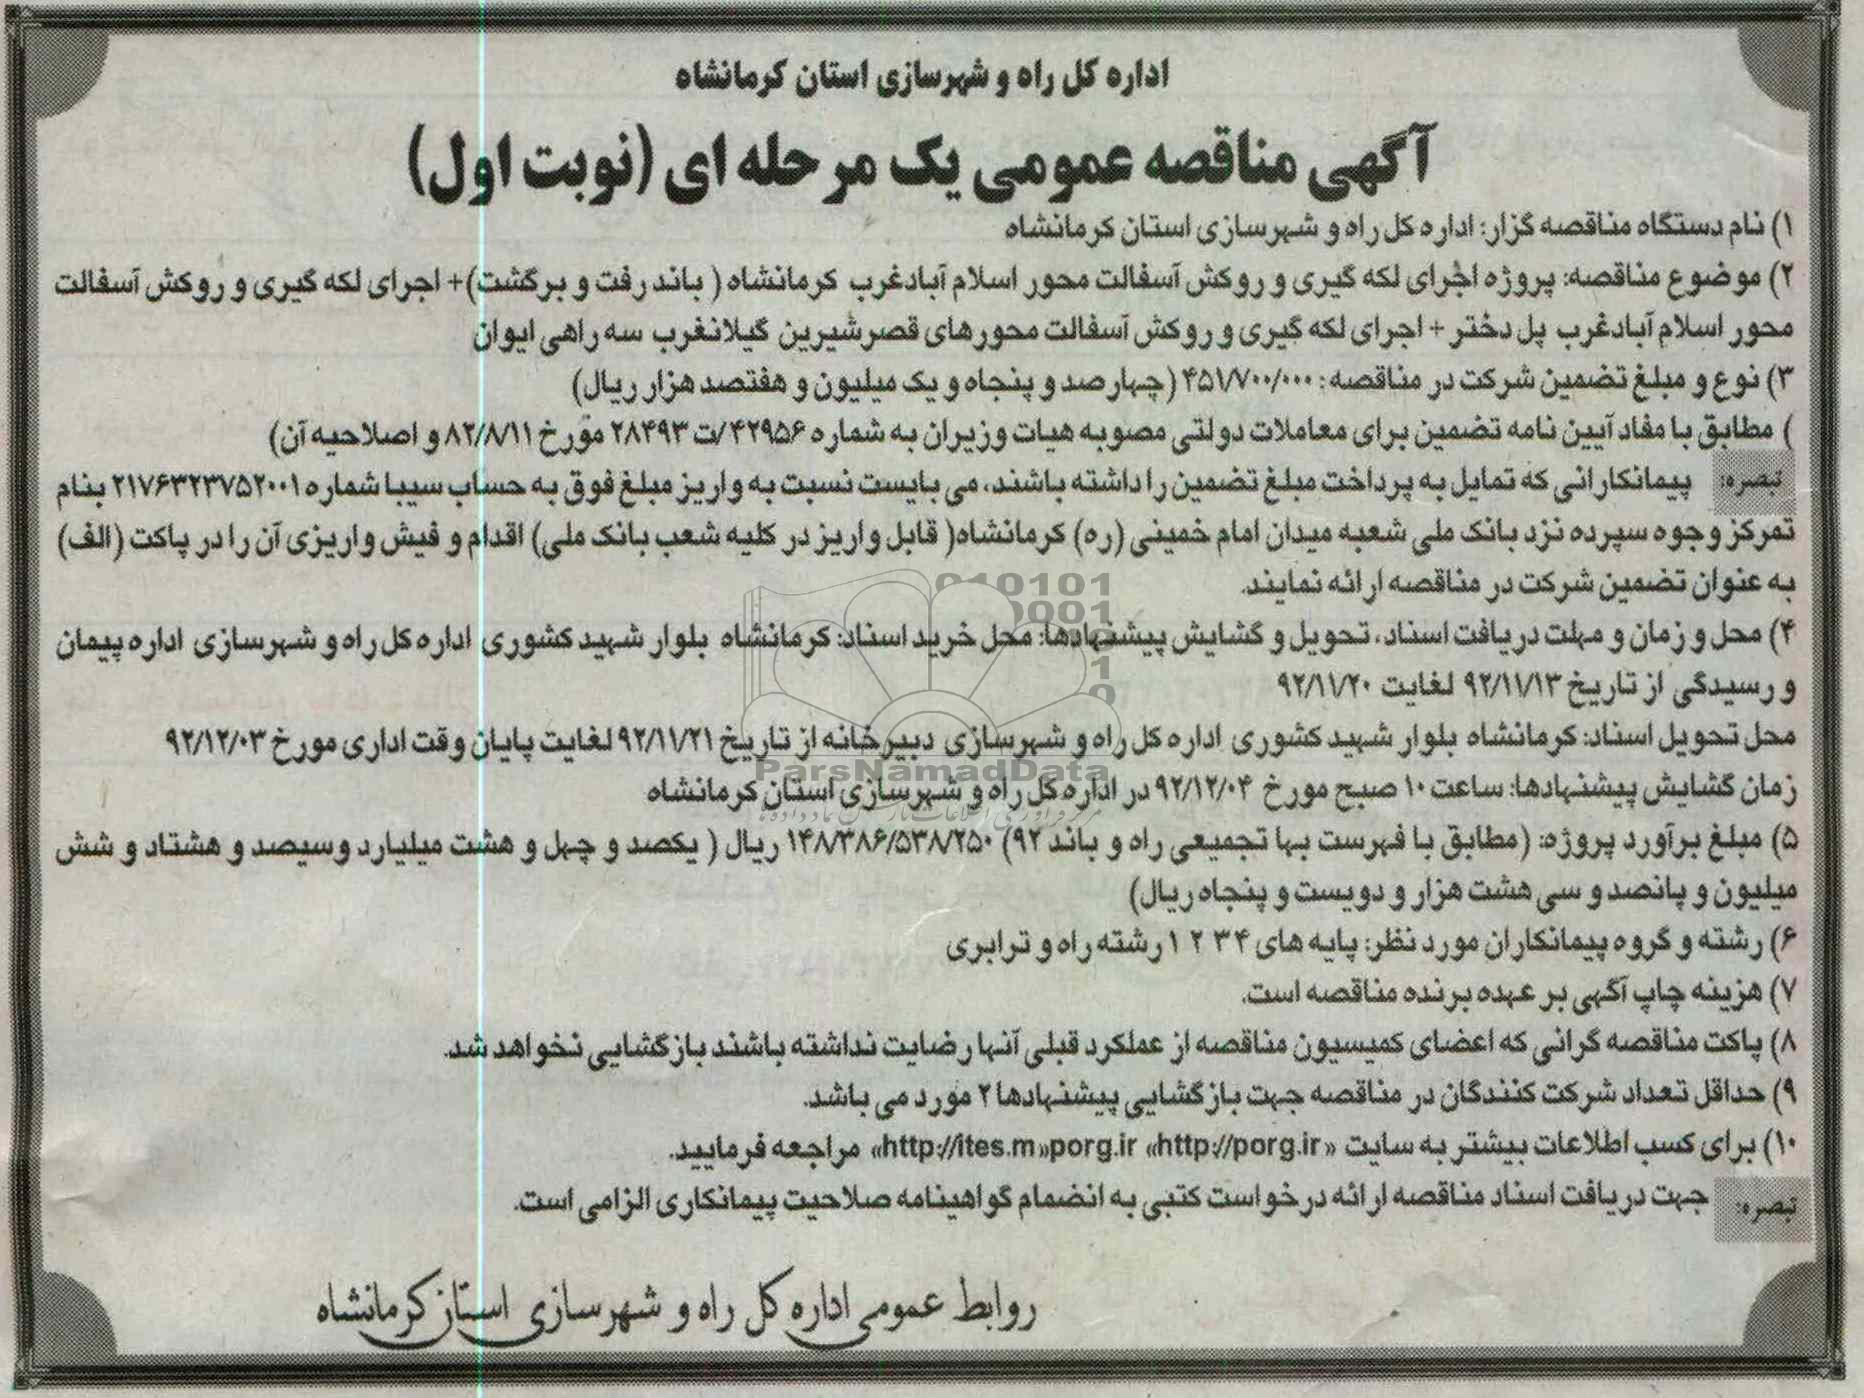 اداره کل راه و شهرسازی استان کرمانشاه
آگهی مناقصه عمومی یک مرحله ای (نوبت اول)
۱) نام دستگاه مناقصه گزار: اداره کل راه و شهرسازی استان کرمانشاه
۲) موضوع مناقصه: پروژه اجرای لکه گیری و روکش آسفالت محور اسلام آبادغرب کرمانشاه ( باند رفت و برگشت)+ اجرای لکه گیری و روکش آسفالت
محور اسلام آبادغرب پل دختر + اجرای لکه گیری و روکش آسفالت محورهای قصرشیرین گیلانغرب سه راهی ایوان
۳) نوع و مبلغ تضمین شرکت در مناقصه: ۴۵۱/۷۰۰/۰۰۰ (چهارصد و پنجاه و یک میلیون و هفتصد هزار ریال)
) مطابق با مفاد آیین نامه تضمین برای معاملات دولتی مصوبه هیات وزیران به شماره ۴۲۹۵۶/ت ۲۸۴۹۳ مورخ ۸۲/۸/۱۱ و اصلاحیه آن)
تبصره: پیمانکارانی که تمایل به پرداخت مبلغ تضمین را داشته باشند، می بایست نسبت به واریز مبلغ فوق به حساب سیبا شماره ۲۱۷۶۳۲۳۷۵۲۰۰۱ بنام
تمرکز وجوه سپرده نزد بانک ملی شعبه میدان امام خمینی (ره) کرمانشاه( قابل واریز در کلیه شعب بانک ملی) اقدام و فیش واریزی آن را در پاکت (الف)
به عنوان تضمین شرکت در مناقصه ارائه نمایند.
۴) محل و زمان و مهلت دریافت اسناد، تحویل و گشایش پیشنهادها: محل خرید اسناد: کرمانشاه بلوار شهید کشوری اداره کل راه و شهرسازی اداره پیمان
و رسیدگی از تاریخ ۹۲/۱۱/۱۳ لغایت ۹۲/۱۱/۲۰
محل تحویل اسناد: کرمانشاه بلوار شهید کشوری اداره کل راه و شهرسازی دبیرخانه از تاریخ ۹۲/۱۱/۲۱ لغایت پایان وقت اداری مورخ ۹۲/۱۲/۰۳
زمان گشایش پیشنهادها: ساعت ۱۰ صبح مورخ ۹۲/۱۲/۰۴ در اداره کل راه و شهرسازی استان کرمانشاه
۵) مبلغ برآورد پروژه: (مطابق با فهرست بها تجمیعی راه و باند ۹۲) ۱۴۸/۳۸۶/۵۳۸/۲۵۰ ریال ( یکصد و چهل و هشت میلیارد و سیصد و هشتاد و شش
میلیون و پانصد و سی هشت هزار و دویست و پنجاه ریال)
۶) رشته و گروه پیمانکاران مورد نظر: پایه های ۴ ۳ ۲ ۱ رشته راه و ترابری
۷) هزینه چاپ آگهی بر عهده برنده مناقصه است.
۸) پاکت مناقصه گرانی که اعضای کمیسیون مناقصه از عملکرد قبلی آنها رضایت نداشته باشند بازگشایی نخواهد شد.
۹) حداقل تعداد شرکت کنندگان در مناقصه جهت بازگشایی پیشنهادها ۲ مورد می باشد.
۱۰) برای کسب اطلاعات بیشتر به سایت «http://porg.ir» «http://ites.m»porg.ir» مراجعه فرمایید.
تبصره: جهت دریافت اسناد مناقصه ارائه درخواست کتبی به انضمام گواهینامه صلاحیت پیمانکاری الزامی است.
روابط عمومی اداره کل راه و شهرسازی استان کرمانشاه
ParsNamadData